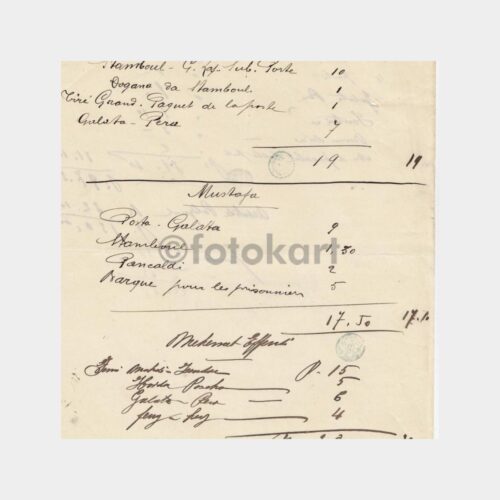 Stamboul - G. Sub. Porte 10
Dogana da Stamboul 1
Tiré Grand. Paquet de la poste 1
Galata - Pera 7
19 19
Mustafa
Posta - Galatta 9
Stamboul 1,50
Pancaldi 2
Barque pour les prisonniers 5
©fotokart
17.50 17.
Mehemet Effendi
P. 15
Haidar Pacha 5
Galata - Pera 6
4